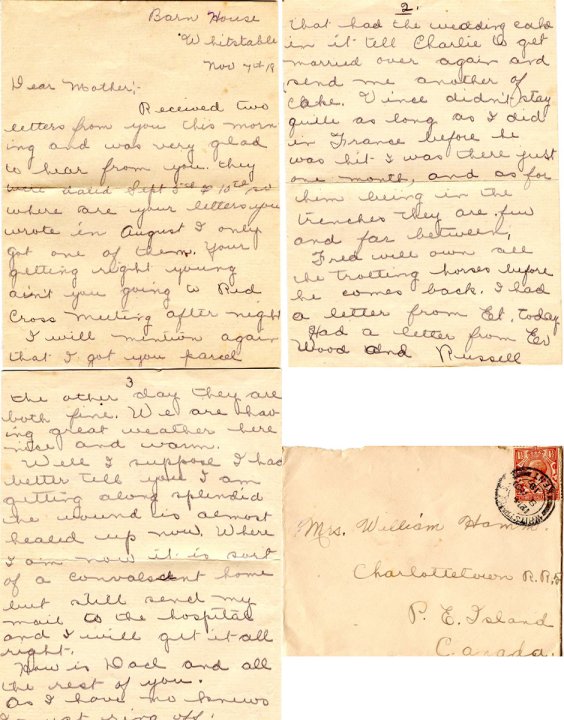 Barn House
Whitstable
Nov 7th 18
Dear Mother;-
Received two
letters from you this morn
ing and was very glad
to hear from you. they
were dated Sept 5th & 10th, so
where are your letters you
wrote in August I only
got one of them. Your
getting right young
ain't you going to Red
Cross meeting after night
I will mention again
that I got you parcel
2.
that had the wedding cake
in it tell Charlie to get
married over again and
send me another of
Cake. Vince didn't stay
quite as long as I did
in France before he
was hit I was there just
one month, and as for
him being in the
trenches they are few
and far between,
Fred will own all
the trotting horses before
he comes back. I had
a letter from Et. today
Had a letter from Ev
Wood and Russell
3
the other day they are
both fine. We are hav
ing great weather here
nice and warm.
Well I suppose I had
better tell you I am
getting along splendid
the wound is almost
healed up now. Where
I am now it is sort
of a convalscent home
but still send my
mail to the hospital
and I will get it all
right.
How is Dad and all
the rest of you.
As I have no knews
ring off.
Mrs. William Hamm.
Charlottetown R.R.5
P. E. Island
Canada.